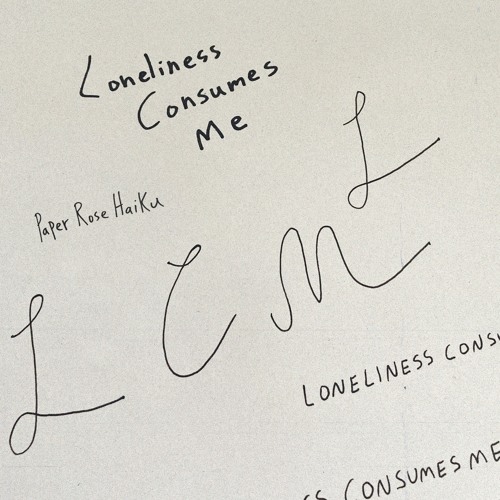 Loneliness
Consumes
Me
L
Paper Rose HaiKu
L C M
LONELINESS CONSU
SS CONSUMES ME